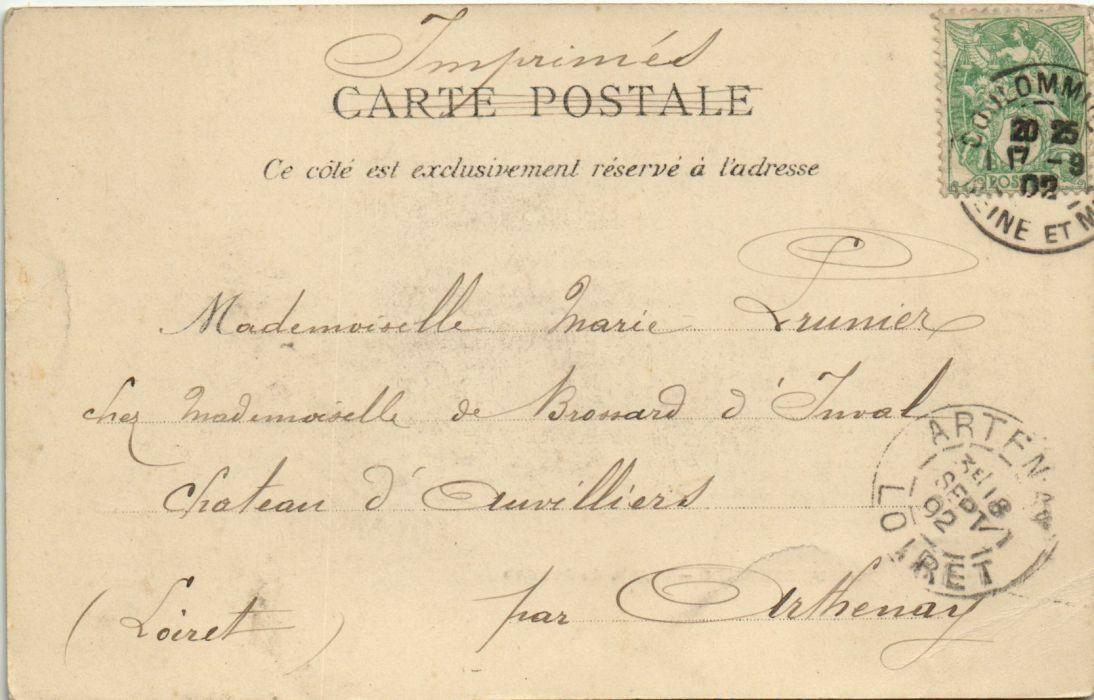 Imprimés
CARTE POSTALE
Ce côté est exclusivement réservé à l'adresse
COULOMMI
20 25
17 -9
02
SEINE ET M
POS
Mademoiselle Marie Prunier
chez Mademoiselle de Brossard d'Inval
Chateau d'Auvilliers
(Loiret) par Arthenay
ARTENAY
18
SEPT
02
LOIRET